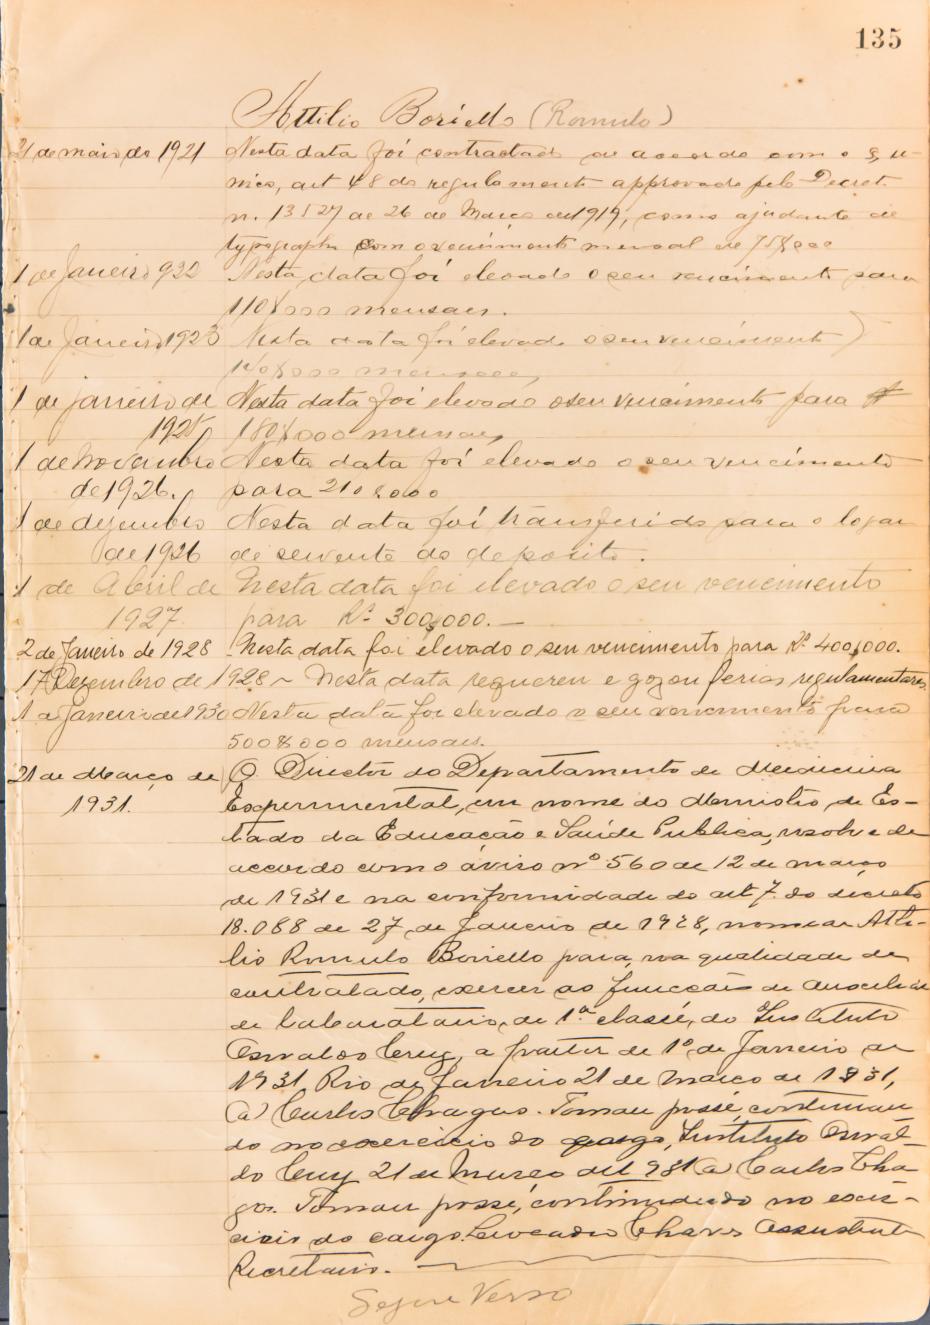 135
Attilio Boriello (Romulo)
21 de maio de 1921 Nesta data foi contractado de accordo com o § u-
nico, art 48 do regulamento approvado pelo Decret.
n. 13527 de 26 de Março de 1919, como ajudante de
typographo com o vencimento mensal de 75$000
1 de Janeiro 922 Nesta data foi elevado o seu vencimento para
110$000 mensaes.
1 de Janeiro 1923 Nesta data foi elevado o seu vencimento
140$000 mensaes,
1 de janeiro de Nesta data foi elevado o seu vencimento para
1925 180$000 mensaes,
1 de Novembro Nesta data foi elevado o seu vencimento
de 1926. para 210$000
1 de dezembro Nesta data foi transferido para o logar
de 1926 de servente do deposito.
1 de Abril de Nesta data foi elevado o seu vencimento
1927. para Rs. 300$000. —
2 de Janeiro de 1928 Nesta data foi elevado o seu vencimento para Rs. 400$000.
17 Dezembro de 1928 - Nesta data requereu e gozou ferias regulamentares.
1 de Janeiro de 1930 Nesta data foi elevado o seu vencimento para
500$000 mensaes.
21 de Março de O Director do Departamento de Medicina
1931. Experimental, em nome do Ministro de Es-
tado da Educação e Saúde Publica, resolve de
accordo com o áviso nº 560 de 12 de março
de 1931 e na conformidade do art 7. do decreto
18.088 de 27 de Janeiro de 1928, nomear Atti-
lio Romulo Boriello para, na qualidade de
contratado, exercer as funcções de auxiliar
de Laboratorio, de 1ª classe, do Instituto
Oswaldo Cruz, a partir de 1º de Janeiro de
1931, Rio de Janeiro 21 de março de 1931,
(a) Carlos Chagas. Tomou posse, continuan
do no exercicio do cargo, Instituto Oswal-
do Cruz 21 de Março de 1931 (a) Carlos Cha
gas. Tomou posse, continuando no exer-
cicio do cargo. Leocadio Chaves Assistente
Secretario.
Segue Verso